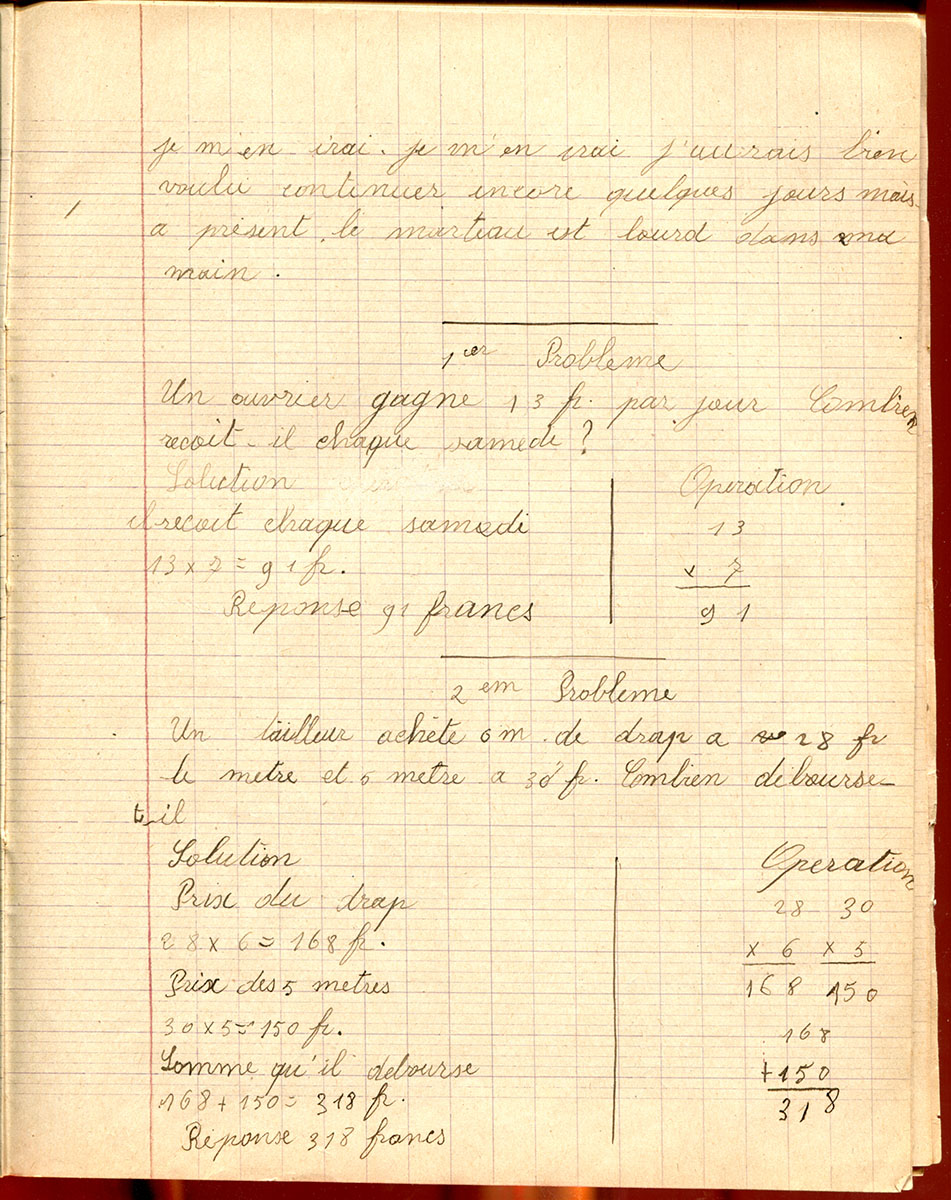 je m'en irai. je m'en irai j'aurais bien
voulu continuer encore quelques jours mais
a présent le marteau est lourd dans ma
main.
1er Probleme
Un ouvrier gagne 13 fr. par jour Combien
recoit-il chaque samedi ?
Solution Operation
il recoit chaque samedi 13
13 x 7 = 91 fr. x 7
Réponse 91 francs 91
2em Probleme
Un tailleur achète 6 m. de drap a 28 fr
le metre et 5 metre a 30 fr. Combien débourse-
t-il
Solution Operation
Prix du drap 28 30
28 x 6 = 168 fr. x 6 x 5
Prix des 5 metres 168 150
30 x 5 = 150 fr. 168
Somme qu'il debourse +150
168 + 150 = 318 fr. 318
Réponse 318 francs